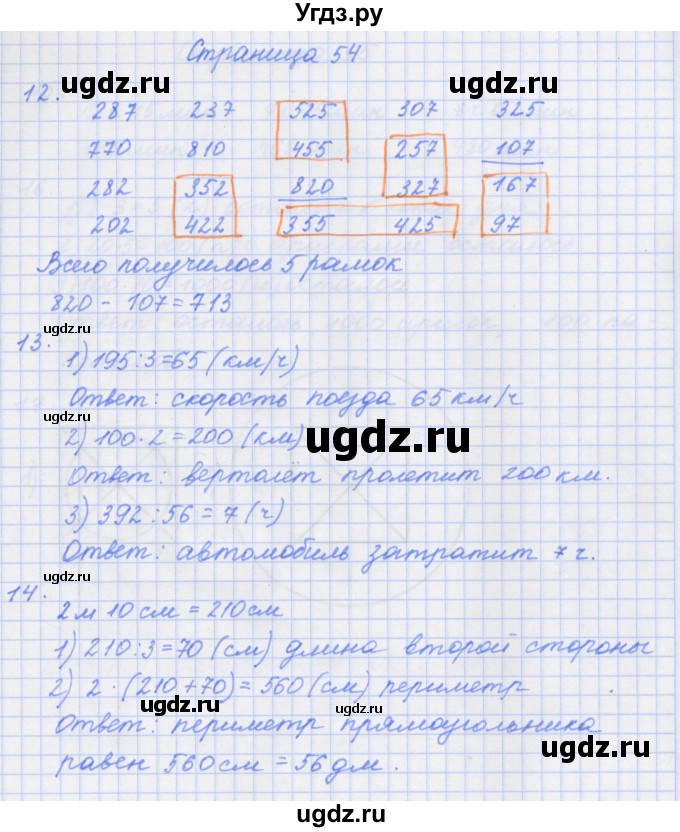 Угдз.ру
Страница 54
ugdz.ru ugdz.ru
12.
287 237 525 307 325
770 810 455 257 107
282 352 820 327 167
202 422 355 425 97
ugdz.ru ugdz.ru
Всего получилось 5 рамок
820 - 107 = 713
ugdz.ru
13.
1) 195:3=65 (км/ч)
Ответ: скорость поезда 65 км/ч
2) 100·2=200 (км)
ugdz.ru
ugdz.ru
Ответ: вертолёт пролетит 200 км.
3) 392:56=7 (ч)
Ответ: автомобиль затратит 7 ч.
ugdz.ru
14.
2 м 10 см = 210 см
ugdz.ru
1) 210:3=70 (см) длина второй стороны
2) 2·(210+70)=560 (см) периметр
ugdz.ru ugdz.ru
Ответ: периметр прямоугольника
ugdz.ru
равен 560 см = 56 дм.
ugdz.ru